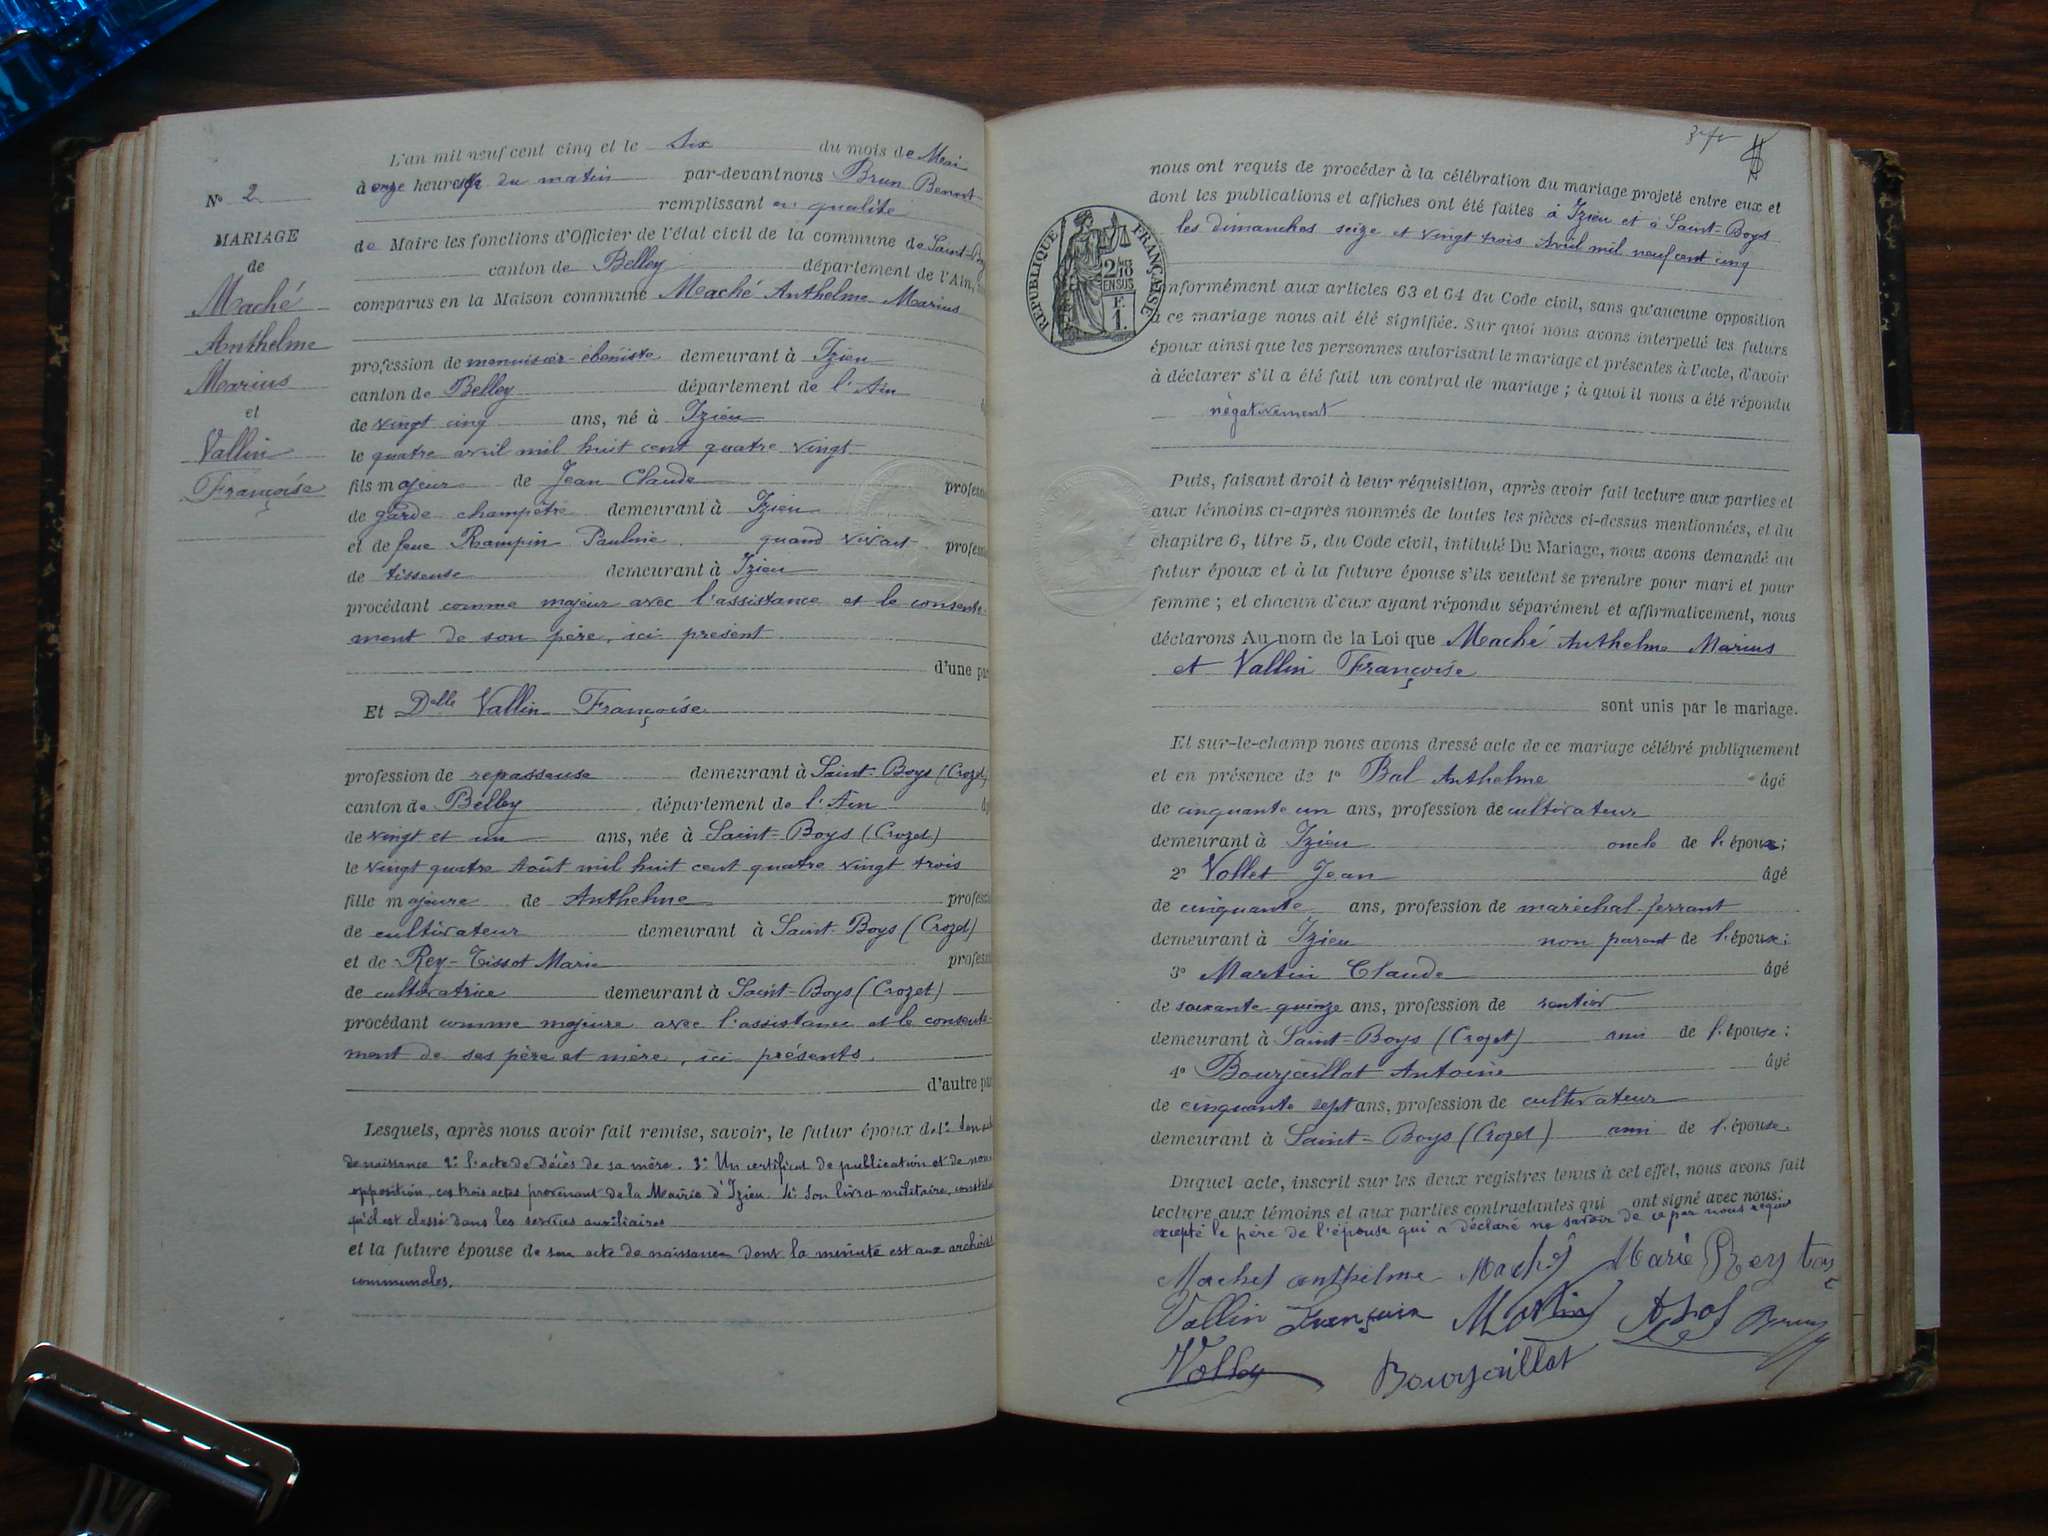 L'an mil neuf cent cinq et le six du mois de Mai
à onze heures du matin par-devant nous Brun Benoit
remplissant en qualité
de Maire les fonctions d'Officier de l'état civil de la commune de Saint-
canton de Belley département de l'Ain,
comparus en la Maison commune Maché Anthelme Marius
profession de menuisier-ébéniste demeurant à Izieu
canton de Belley département de l'Ain
de vingt cinq ans, né à Izieu
le quatre avril mil huit cent quatre vingt
fils majeur de Jean Claude profess
de garde champêtre demeurant à Izieu
et de feue Rampin Pauline quand vivait profess
de tisseuse demeurant à Izieu
procédant comme majeur avec l'assistance et le consente-
ment de son père, ici présent
d'une par
N° 2
MARIAGE
de
Maché
Anthelme
Marius
et
Vallin
Françoise
Et Delle Vallin Françoise
profession de repasseuse demeurant à Saint-Boys (Crozet)
canton de Belley département de l'Ain
de vingt et un ans, née à Saint-Boys (Crozet)
le vingt quatre Août mil huit cent quatre vingt trois
fille majeure de Anthelme profess
de cultivateur demeurant à Saint-Boys (Crozet)
et de Rey-Tissot Marie profess
de cultivatrice demeurant à Saint-Boys (Crozet)
procédant comme majeure avec l'assistance et le consente-
ment de ses père et mère, ici présents.
d'autre par
Lesquels, après nous avoir fait remise, savoir, le futur époux de 1°
de naissance 2° l'acte de décès de sa mère. 3° Un certificat de publication et de non
opposition, ces trois actes provenant de la Mairie d'Izieu. 4° Son livret militaire, constatant
qu'il est classé dans les services auxiliaires
et la future épouse de son acte de naissance dont la minute est aux archives
communales.
nous ont requis de procéder à la célébration du mariage projeté entre eux et
dont les publications et affiches ont été faites à Izieu et à Saint-Boys
les dimanches seize et vingt trois Avril mil neuf cent cinq
RÉPUBLIQUE FRANÇAISE
2/10
EN SUS
F.
1.
onformément aux articles 63 et 64 du Code civil, sans qu'aucune opposition
à ce mariage nous ait été signifiée. Sur quoi nous avons interpellé les futurs
époux ainsi que les personnes autorisant le mariage et présentes à l'acte, d'avoir
à déclarer s'il a été fait un contrat de mariage ; à quoi il nous a été répondu
négativement
Puis, faisant droit à leur réquisition, après avoir fait lecture aux parties et
aux témoins ci-après nommés de toutes les pièces ci-dessus mentionnées, et du
chapitre 6, titre 5, du Code civil, intitulé Du Mariage, nous avons demandé au
futur époux et à la future épouse s'ils veulent se prendre pour mari et pour
femme ; et chacun d'eux ayant répondu séparément et affirmativement, nous
déclarons Au nom de la Loi que Maché Anthelme Marius
et Vallin Françoise
sont unis par le mariage.
Et sur-le-champ nous avons dressé acte de ce mariage célébré publiquement
et en présence de 1° Bal Anthelme âgé
de cinquante un ans, profession de cultivateur
demeurant à Izieu oncle de l'époux ;
2° Vollet Jean âgé
de cinquante ans, profession de maréchal-ferrant
demeurant à Izieu non parent de l'épouse ;
3° Martin Claude âgé
de soixante quinze ans, profession de rentier
demeurant à Saint-Boys (Crozet) ami de l'épouse ;
4° Bourjaillat Antoine âgé
de cinquante sept ans, profession de cultivateur
demeurant à Saint-Boys (Crozet) ami de l'épouse.
Duquel acte, inscrit sur les deux registres tenus à cet effet, nous avons fait
lecture aux témoins et aux parties contractantes qui ont signé avec nous,
excepté le père de l'épouse qui a déclaré ne savoir de ce par nous requis
Machet anthelme Marie Rey
Vallin Françoise Martin Brun
Bourjaillat